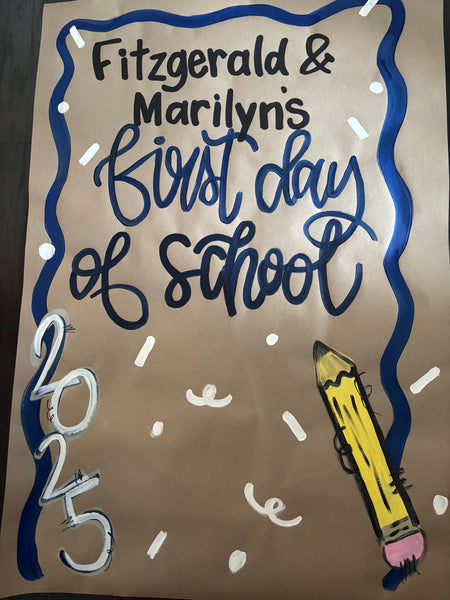 Fitzgerald &
Marilyn's
first day
of school
2025